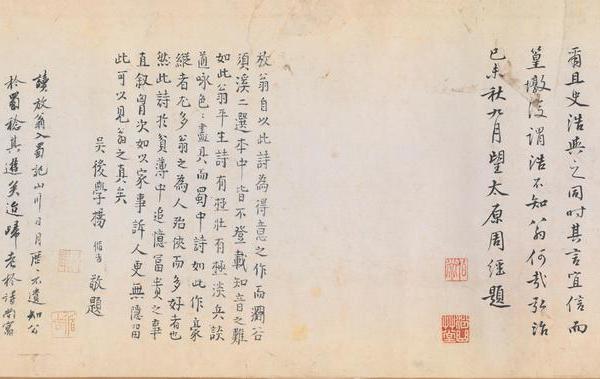 爾且史浩與之同時其言宜信而
篁墩復謂浩不知翁何哉弘治
己未秋九月望太原周經題
放翁自以此詩為得意之作而澗谷
須溪二選本中皆不登載知音之難
如此翁平生詩有極壯有極淡兵談
酒咏色〻盡具而蜀中詩如此作豪
縱者尤多翁之為人殆俠而多好者也
然此詩於貧薄中追憶富貴之事
直叙胷次如以家事訴人更無隱留
此可以見翁之真矣
吳後學楊循吉敬題
讀放翁入蜀記山川日月歷〻不遺知公
於蜀稔其遊矣迨歸老於詩尚寫